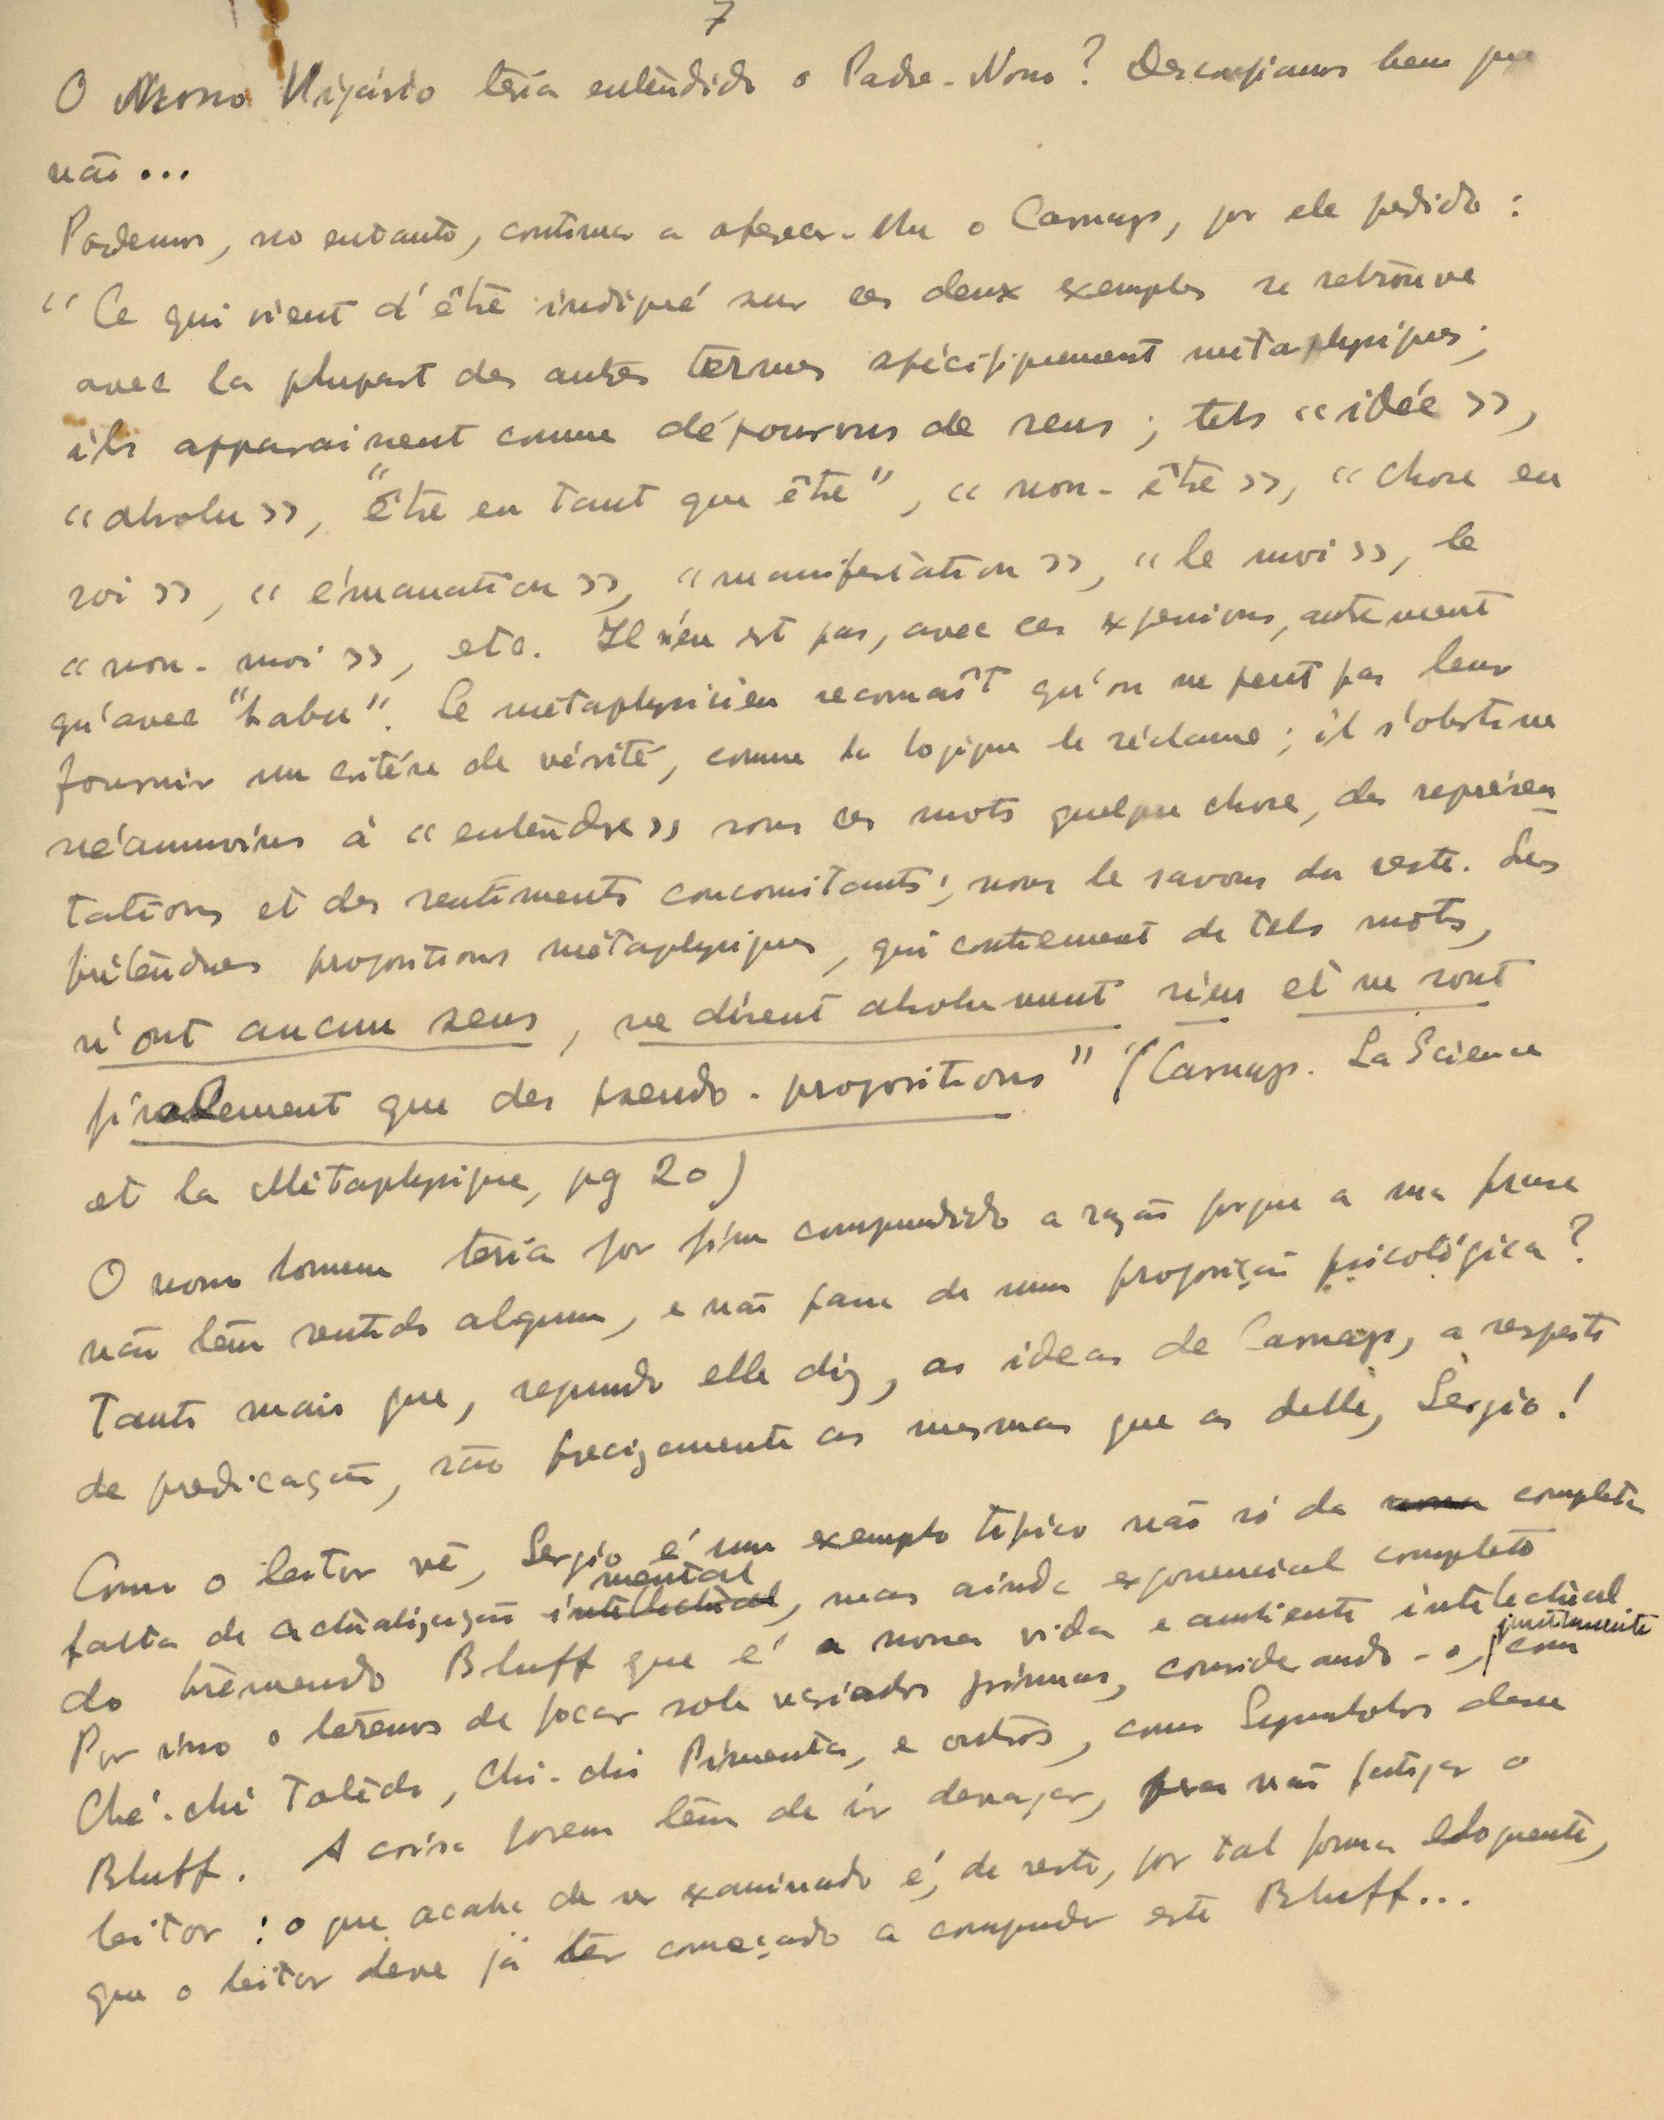 7
O Nosso Vigário teria entendido o Padre-Nosso? Desconfiamos bem que
não...
Podemos, no entanto, continuar a oferecer-lhe o Carnap, por ele pedido:
"Ce qui vient d'être indiqué sur ces deux exemples se retrouve
avec la plupart des autres termes spécifiquement métaphysiques;
ils apparaissent comme dépourvus de sens; tels «idée»,
«absolu», "être en tant que être", «non-être», «chose en
soi», «émanation», «manifestation», «le moi», le
«non-moi», etc. Il n'en est pas, avec ces expressions, autrement
qu'avec "babu". Le métaphysicien reconnaît qu'on ne peut pas leur
fournir un critère de vérité, comme la logique le réclame; il s'obstine
néanmoins à «entendre» sous ces mots quelque chose, des représen
tations et des sentiments concomitants; nous le savons du reste. Les
prétendues propositions métaphysiques, qui contiennent de tels mots,
n'ont aucun sens, ne disent absolument rien et ne sont
finalement que des pseudo-propositions" (Carnap. La Science
et la Métaphysique, pg 20)
O nosso homem teria por fim compreendido a razão porque a sua frase
não têm sentido algum, e não passa de uma proposição psicológica?
Tanto mais que, segundo elle diz, as ideas de Carnap, a respeito
de predicação, são precizamente as mesmas que as delle, Sergio!
Como o leitor vê, Sergio é um exemplo tipico não só da uma completa
falta de actualização intellectual mental, mas ainda exponencial completo
do tremendo Bluff que é a nossa vida e ambiente intelectual
Por isso o teremos de focar sob variados prismas, considerando-o, juntamente com
Ché-ché Toledo, Chi-chi Pimenta, e outros, como Symbolos desse
Bluff. A coisa porem têm de ir devagar, pra não fatigar o
leitor: o que acaba de ser examinado é, de resto, por tal forma eloquente,
que o leitor deve já ter começado a compreender este Bluff...